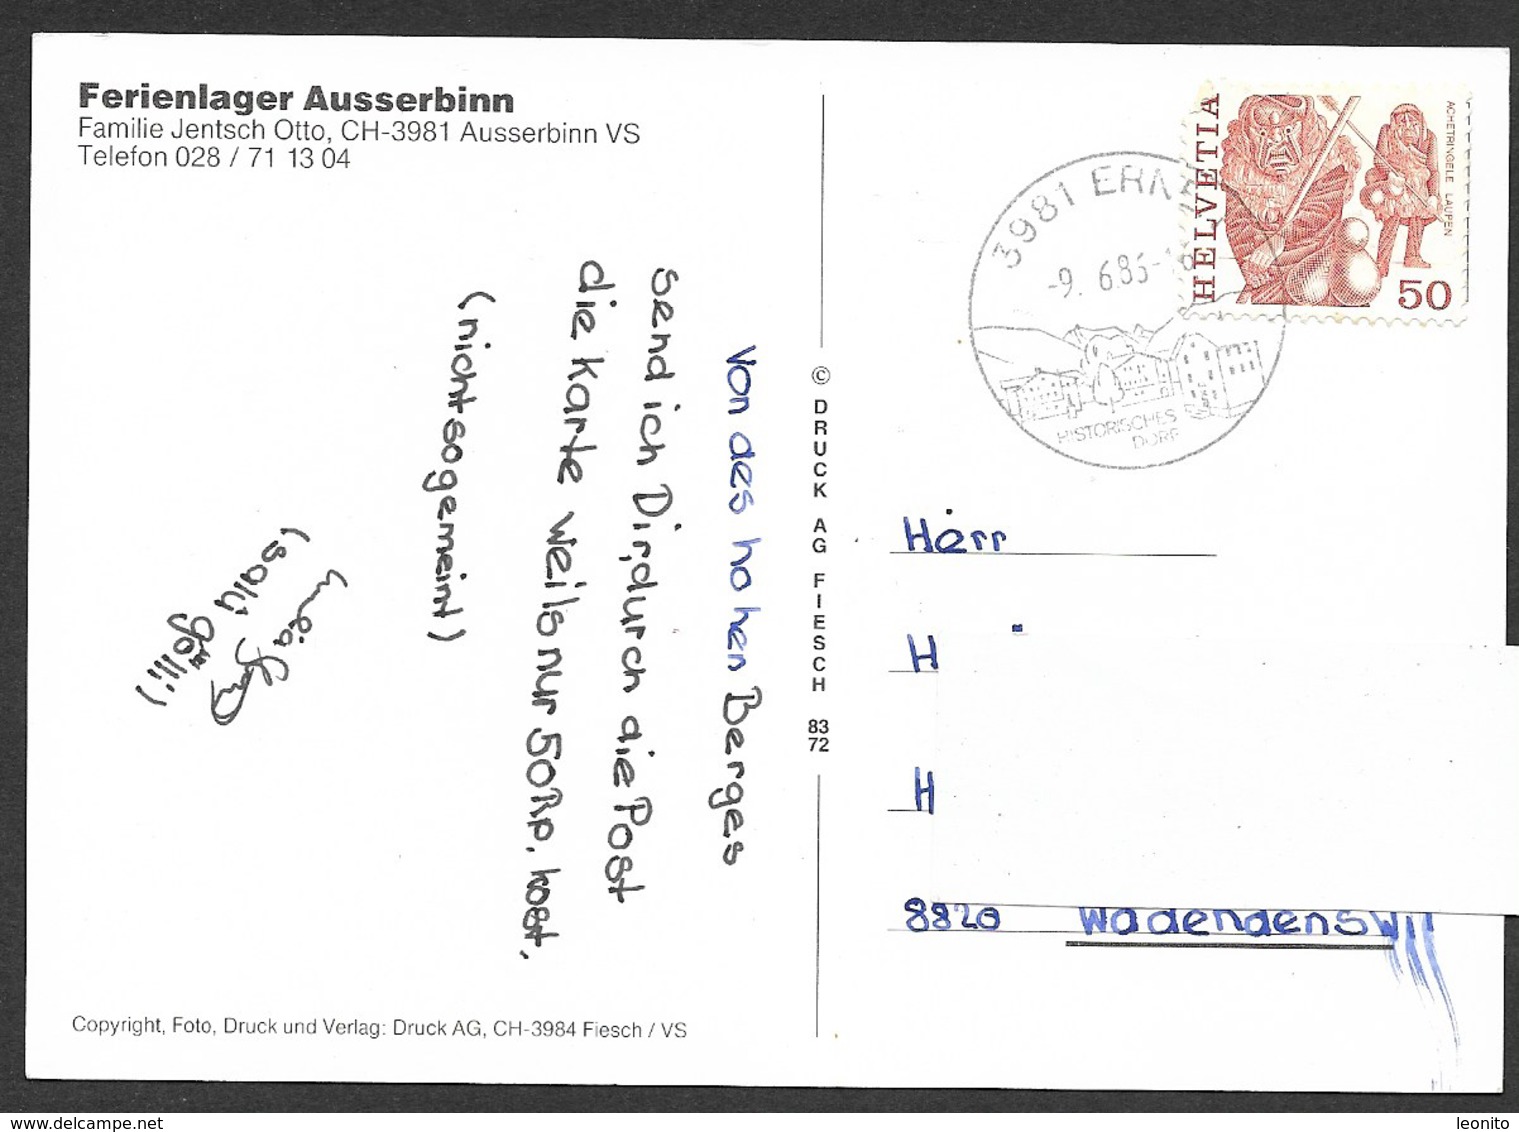 Ferienlager Ausserbinn
Familie Jentsch Otto, CH-3981 Ausserbinn VS
Telefon 028 / 71 13 04
Von des hohen Berges
send ich Dir, durch die Post
die Karte weils nur 50Rp. kost.
(nicht so gemeint)
(salü
göllli)
Copyright, Foto, Druck und Verlag: Druck AG, CH-3984 Fiesch / VS
© DRUCK AG FIESCH 83 72
3981 ERNEN
-9. 6.86-18
HISTORISCHES
DORF
HELVETIA
ACHETRINGELE LAUPEN
50
Herr
H
H
8820 Wädendenswil
leonito